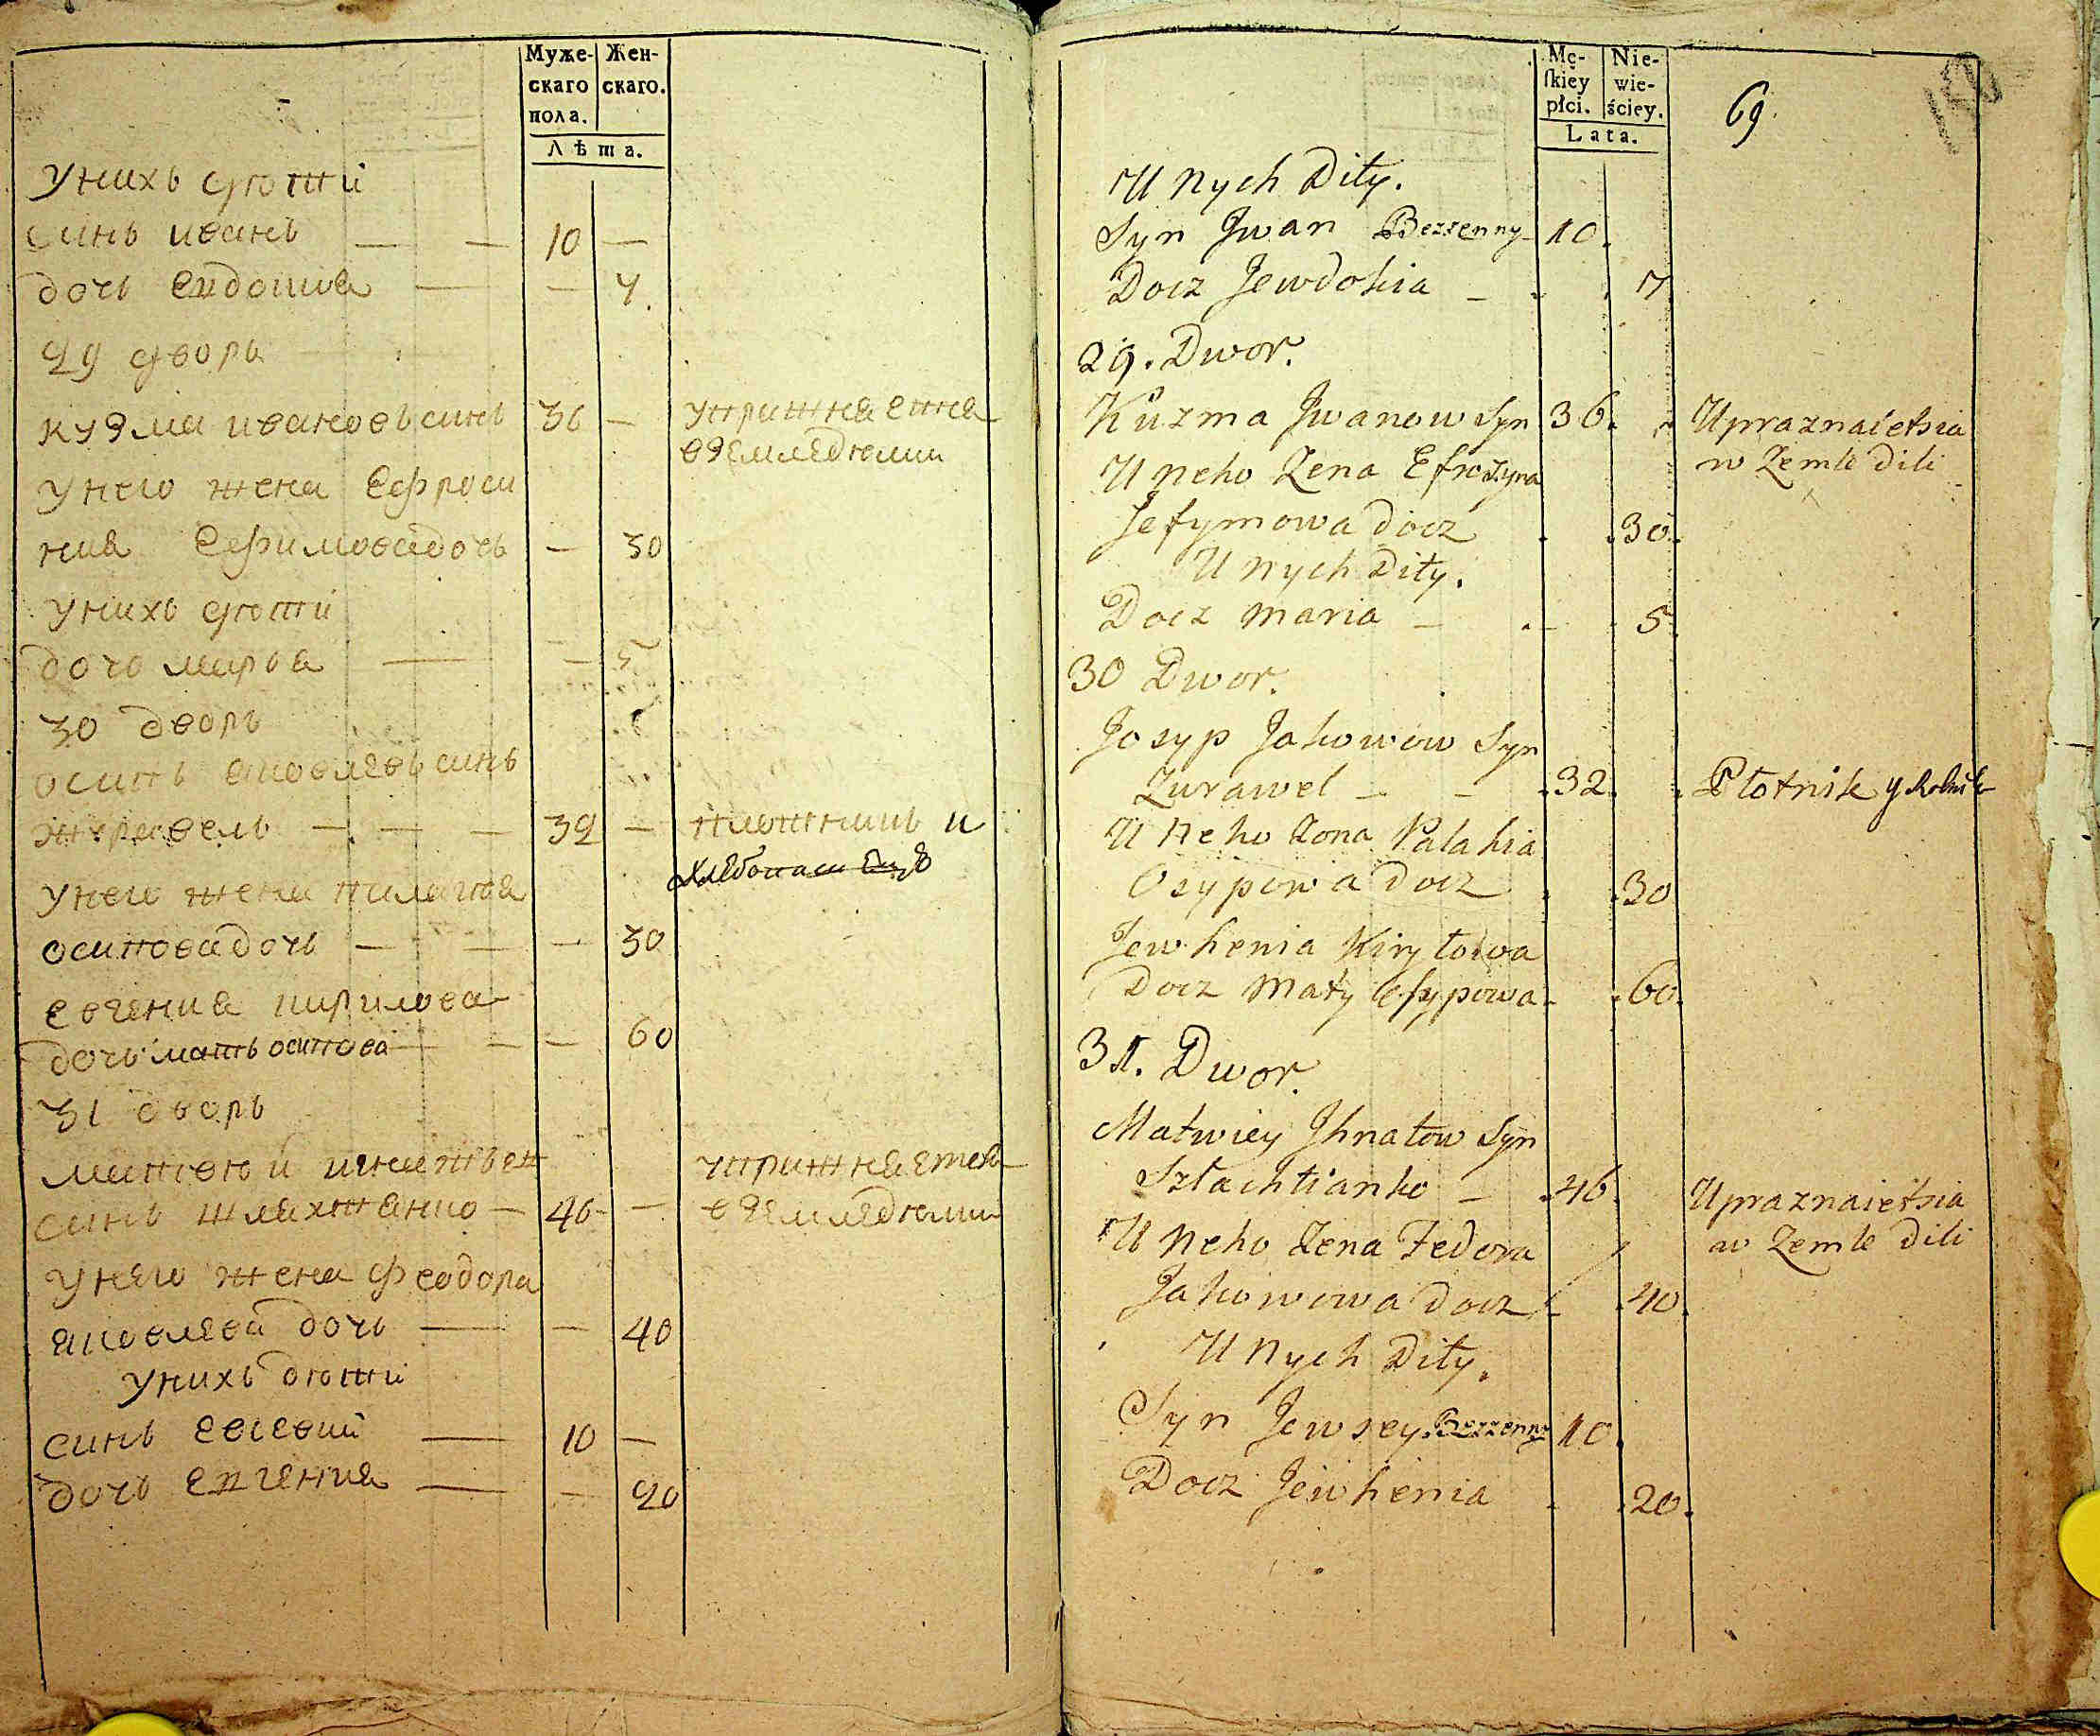 Муже-
скаго
пола.
Жен-
скаго.
Лѣта.
унихъ дѣти
синъ иванъ — — 10 —
дочь евдокия — — 7.
29 дворъ
кузма ивановъ синъ 36 — упражняется
в земледѣлии
унего жена Ефроси
ния Ефимова дочь — 30
унихъ дѣти
дочь мария — — 5
30 дворъ
осипъ яковлевъ синъ
журавель — — — 32 — плотникъ и
унего жена пилагия
осипова дочь — — — 30
евгения кирилова
дочь мать осипова — — — 60
31 дворъ
матвѣй игнатьев
упражняется
синъ шляхтянко — 46 — в земледѣлии
унего жена феодора
яковлева дочь — — 40
унихъ дѣти
синъ евсевий — 10 —
дочь евгения — — 20
Mę-
ſkiey
płci.
Nie-
wie-
ściey.
Lata.
69.
U nych Dity.
Syn Jwan Bezzenny 10.
Docz Jewdokia — 7
29. Dwor.
Kuzma Jwanow Syn 36. Upraznaietsia
w Zemle dili
U neho Zena Efrozyna
Jefymowa docz .30.
U nych Dity.
Docz Maria — 5
30 Dwor.
Josyp Jakowow Syn
Zurawel — — .32. Płotnik y
U neho Zona Palahia
Osypowa docz .30
Jewhenia Kiryłowa
Docz Maty Osypowa .60.
31. Dwor.
Matwiey Jhnatow Syn
Szlachtianko — .46. Upraznaietsia
w Zemle dili
U neho Zena Fedora
Jakowowa docz .40.
U nych Dity.
Syn Jewsey Bezzenny 10.
Docz Jewhenia .20.